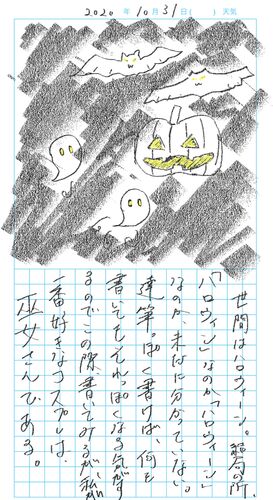 2020年10月31日( ) 天気
世間はハロウィーン。結局の所、
「ハロウィン」なのか「ハロウィーン」
なのか、未だに分かっていない。
達筆っぽく書けば、何を
書いてもそれっぽくなる気がす
るのでこの際書いてみるが、私が
一番好きなコスプレは、
巫女さんである。